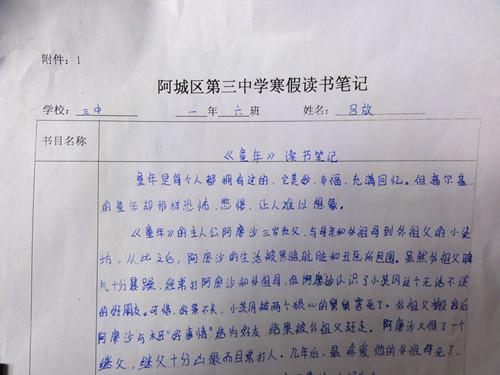 附件：1
阿城区第三中学寒假读书笔记
学校： 三中 一 年 六 班 姓名： 吕放
书目名称
《童年》读书笔记
童年是每个人都拥有过的，它美妙、幸福、充满回忆。但高尔基
的童年却那样恐怖、悲惨、让人难以想象。
《童年》的主人公阿廖沙三岁丧父，与母亲和外祖母到外祖父的小染
坊，从此之后，阿廖沙的生活被黑暗、肮脏和丑恶所包围。虽然外祖父脾
气十分暴躁，经常打阿廖沙和外祖母，但阿廖沙认识了小茨冈这个无话不谈
的好朋友。可惜，好景不长，小茨冈被两个狠心的舅舅害死了。外祖父搬家后
阿廖沙与木匠“好事情”结为好友，结果被外祖父赶走。阿廖沙又得了一个
继父，继父十分凶狠而且常打人。几年后，最疼爱他的外祖母死了，